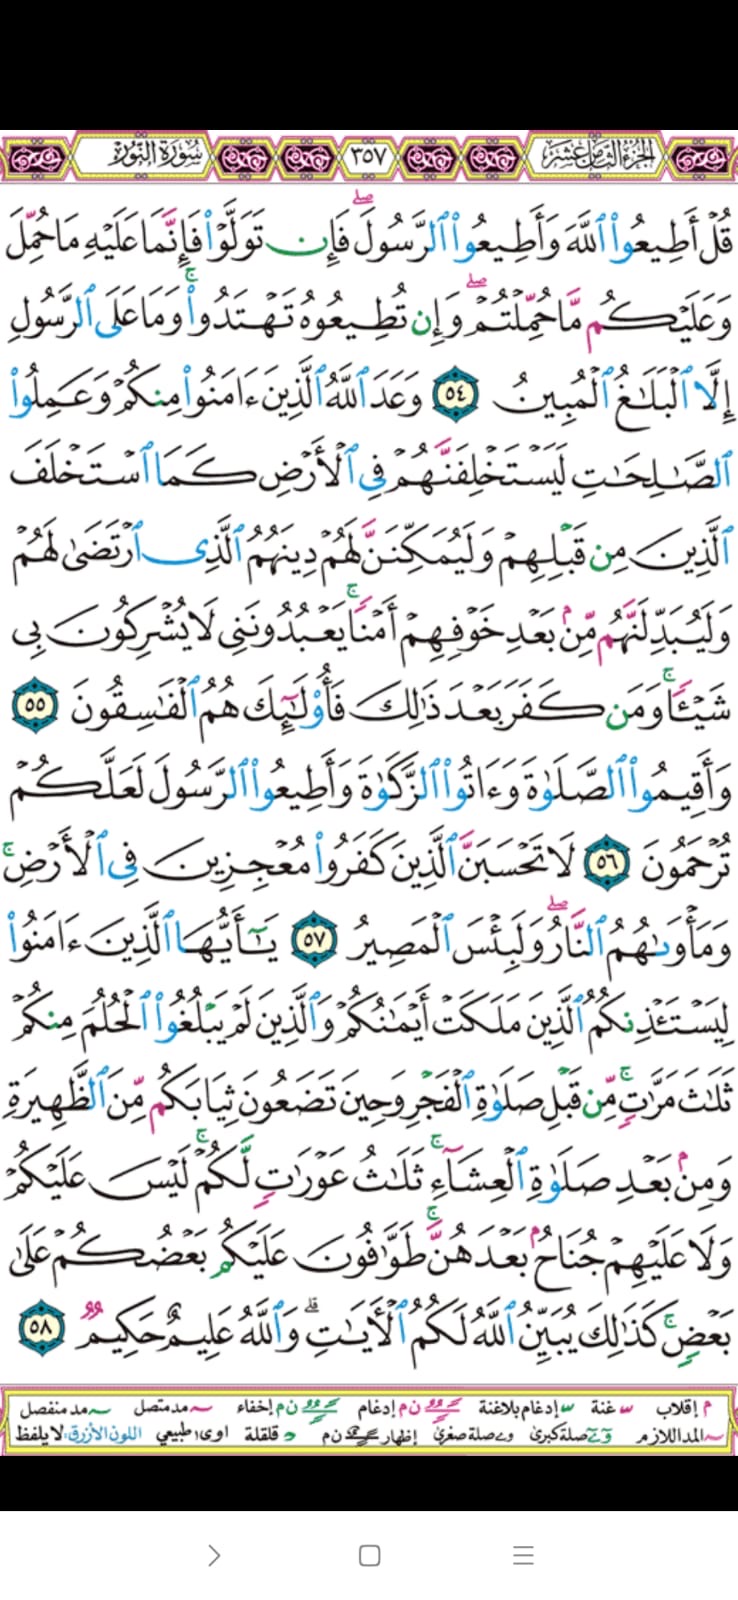 الجزء الثامن عشر ٣٥٧ سورة النور
قُلْ أَطِيعُوا۟ ٱللَّهَ وَأَطِيعُوا۟ ٱلرَّسُولَ ۖ فَإِن تَوَلَّوْا۟ فَإِنَّمَا عَلَيْهِ مَا حُمِّلَ
وَعَلَيْكُم مَّا حُمِّلْتُمْ ۖ وَإِن تُطِيعُوهُ تَهْتَدُوا۟ ۚ وَمَا عَلَى ٱلرَّسُولِ
إِلَّا ٱلْبَلَـٰغُ ٱلْمُبِينُ ٥٤ وَعَدَ ٱللَّهُ ٱلَّذِينَ ءَامَنُوا۟ مِنكُمْ وَعَمِلُوا۟
ٱلصَّـٰلِحَـٰتِ لَيَسْتَخْلِفَنَّهُمْ فِى ٱلْأَرْضِ كَمَا ٱسْتَخْلَفَ
ٱلَّذِينَ مِن قَبْلِهِمْ وَلَيُمَكِّنَنَّ لَهُمْ دِينَهُمُ ٱلَّذِى ٱرْتَضَىٰ لَهُمْ
وَلَيُبَدِّلَنَّهُم مِّنۢ بَعْدِ خَوْفِهِمْ أَمْنًا ۚ يَعْبُدُونَنِى لَا يُشْرِكُونَ بِى
شَيْـًٔا ۚ وَمَن كَفَرَ بَعْدَ ذَٰلِكَ فَأُو۟لَـٰٓئِكَ هُمُ ٱلْفَـٰسِقُونَ ٥٥
وَأَقِيمُوا۟ ٱلصَّلَوٰةَ وَءَاتُوا۟ ٱلزَّكَوٰةَ وَأَطِيعُوا۟ ٱلرَّسُولَ لَعَلَّكُمْ
تُرْحَمُونَ ٥٦ لَا تَحْسَبَنَّ ٱلَّذِينَ كَفَرُوا۟ مُعْجِزِينَ فِى ٱلْأَرْضِ ۚ
وَمَأْوَىٰهُمُ ٱلنَّارُ ۖ وَلَبِئْسَ ٱلْمَصِيرُ ٥٧ يَـٰٓأَيُّهَا ٱلَّذِينَ ءَامَنُوا۟
لِيَسْتَـْٔذِنكُمُ ٱلَّذِينَ مَلَكَتْ أَيْمَـٰنُكُمْ وَٱلَّذِينَ لَمْ يَبْلُغُوا۟ ٱلْحُلُمَ مِنكُمْ
ثَلَـٰثَ مَرَّٰتٍ ۚ مِّن قَبْلِ صَلَوٰةِ ٱلْفَجْرِ وَحِينَ تَضَعُونَ ثِيَابَكُم مِّنَ ٱلظَّهِيرَةِ
وَمِنۢ بَعْدِ صَلَوٰةِ ٱلْعِشَآءِ ۚ ثَلَـٰثُ عَوْرَٰتٍ لَّكُمْ ۚ لَيْسَ عَلَيْكُمْ
وَلَا عَلَيْهِمْ جُنَاحٌۢ بَعْدَهُنَّ ۚ طَوَّٰفُونَ عَلَيْكُم بَعْضُكُمْ عَلَىٰ
بَعْضٍ ۚ كَذَٰلِكَ يُبَيِّنُ ٱللَّهُ لَكُمُ ٱلْـَٔايَـٰتِ ۗ وَٱللَّهُ عَلِيمٌ حَكِيمٌ ٥٨
م إقلاب غنة إدغام بلاغنة ن م إدغام ن م إخفاء مد متصل مد منفصل
المد اللازم صلة كبرى صلة صغرى إظهار ن م قلقلة اوى طبيعي اللون الأزرق: لا يلفظ